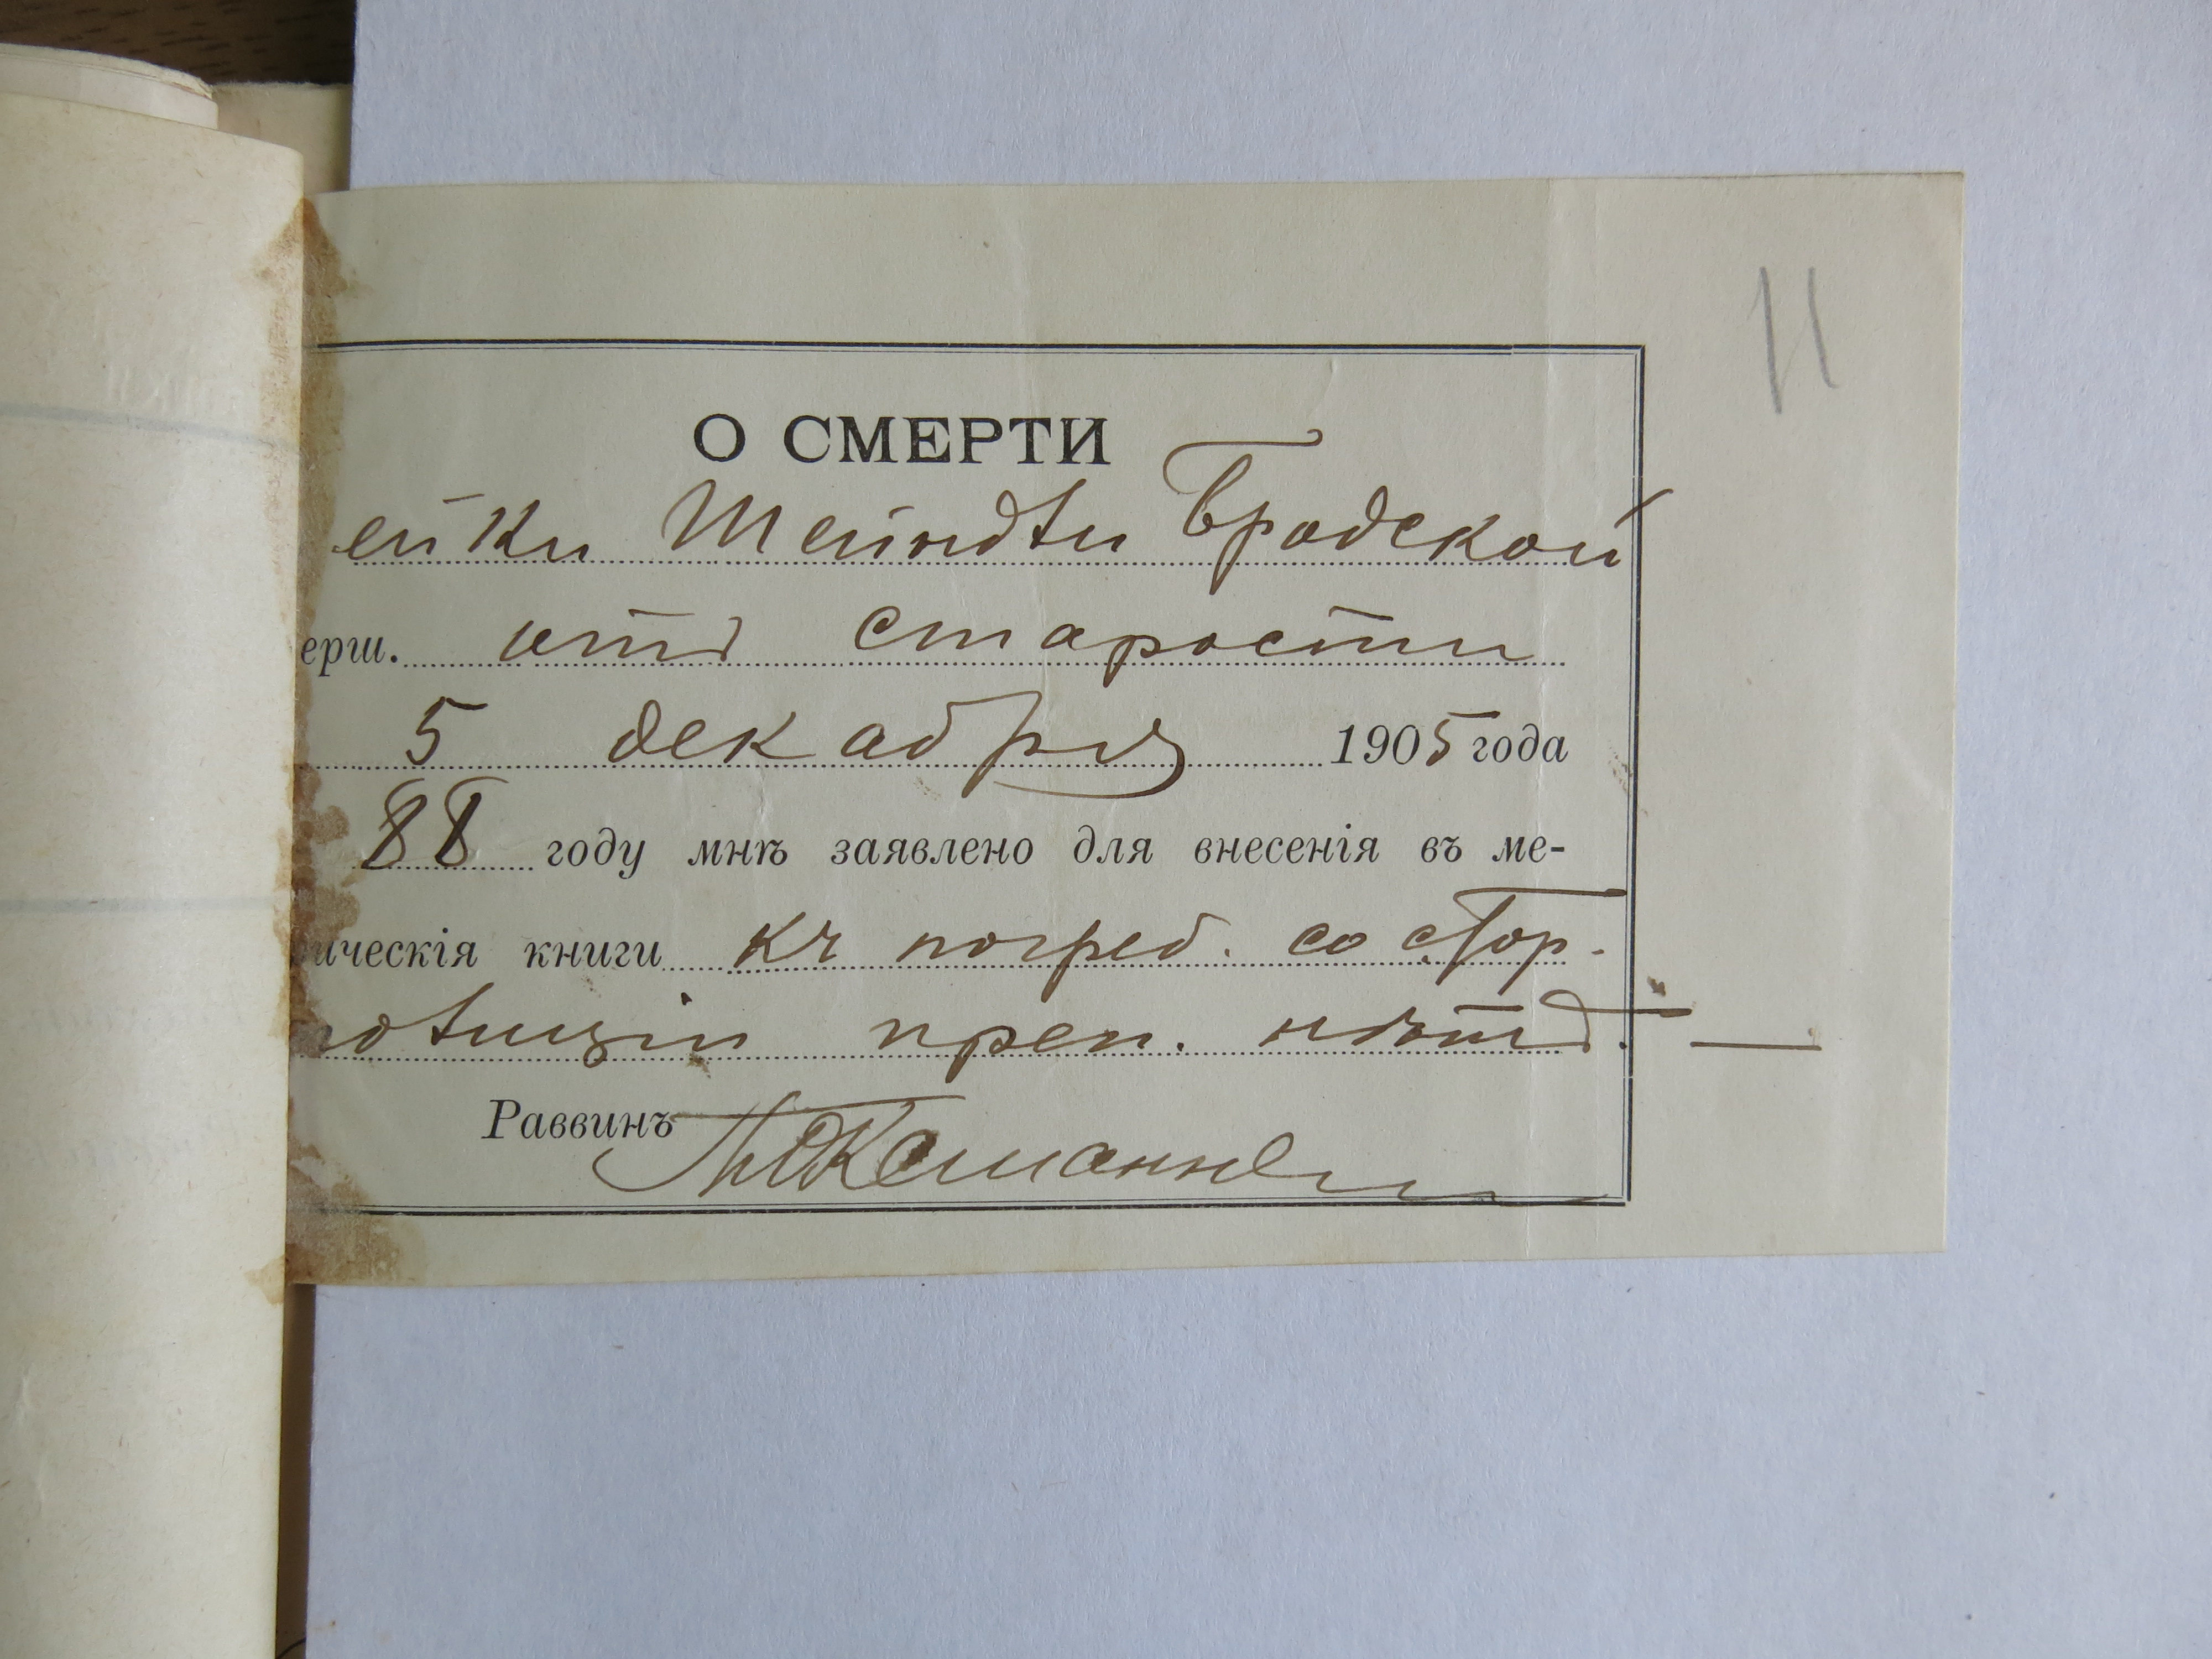 11
О СМЕРТИ
ейки Шейндли Бродской
ерш. отъ старости
5 декабря 1905 года
88 году мнѣ заявлено для внесенія въ ме-
ическія книги къ погреб. со стор.
олиціи преп. нѣтъ. —
Раввинъ